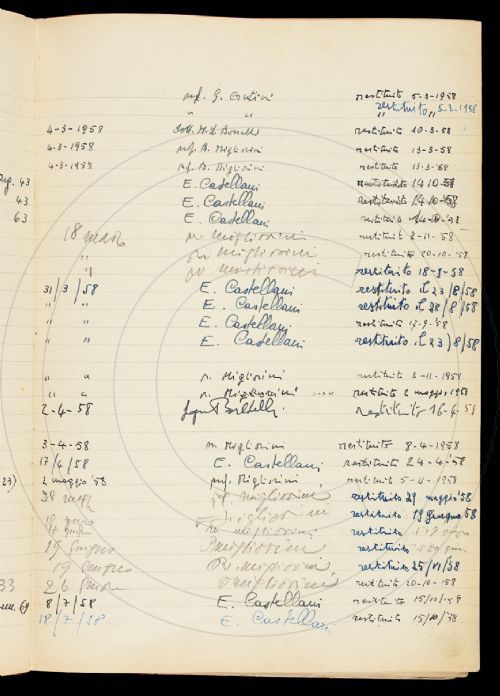 prof. G. Contini restituito 5-3-1958
" " restituito 5-3-1958
4-3-1958 Dott. M. L. restituito 10-3-58
4-3-1958 prof. B. Migliorini restituito 13-3-58
4-3-1958 prof. B. Migliorini restituito 13-3-58
43 E. Castellani restituito 14-10-58
43 E. Castellani restituito 14-10-58
63 E. Castellani restituito 14-10-58
18 marzo Migliorini restituito 2-11-58
" Migliorini restituito 20-10-58
" restituito 18-9-58
31/3/58 E. Castellani restituito il 23/8/58
" " E. Castellani restituito il 28/8/58
" " E. Castellani restituito 17-9-58
" " E. Castellani restituito il 23/8/58
" " Migliorini restituito 3-11-1958
" " Migliorini restituito 2 maggio 1958
2-4-58 restituito 16-6-51
3-4-58 Migliorini restituito 8-4-1958
17/4/58 E. Castellani restituito 24-4-58
23) 2 maggio '58 prof. Migliorini restituito 5-11-1958
28 Migliorini restituito 29 maggio '58
Migliorini restituito 19 giugno 58
Migliorini restituito
19 giugno Migliorini restituito
19 giugno Migliorini restituito 25/11/38
33 26 Migliorini restituito 20-10-'58
69 8/7/58 E. Castellani restituito 15/10/58
18/7/58 E. Castellani restituito 15/10/58